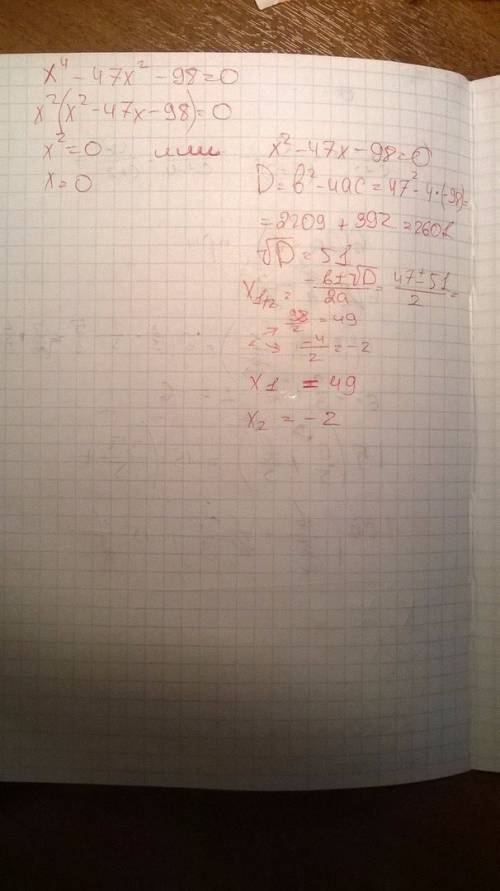 x⁴ - 47x² - 98 = 0
x²(x² - 47x - 98) = 0
x² = 0 или x² - 47x - 98 = 0
x = 0
D = b² - 4ac = 47² - 4·(-98) =
= 2209 + 392 = 2601
√D = 51
x₁,₂ = (-b ± √D)/2a = (47 ± 51)/2 =
→ 98/2 = 49
→ -4/2 = -2
x₁ = 49
x₂ = -2